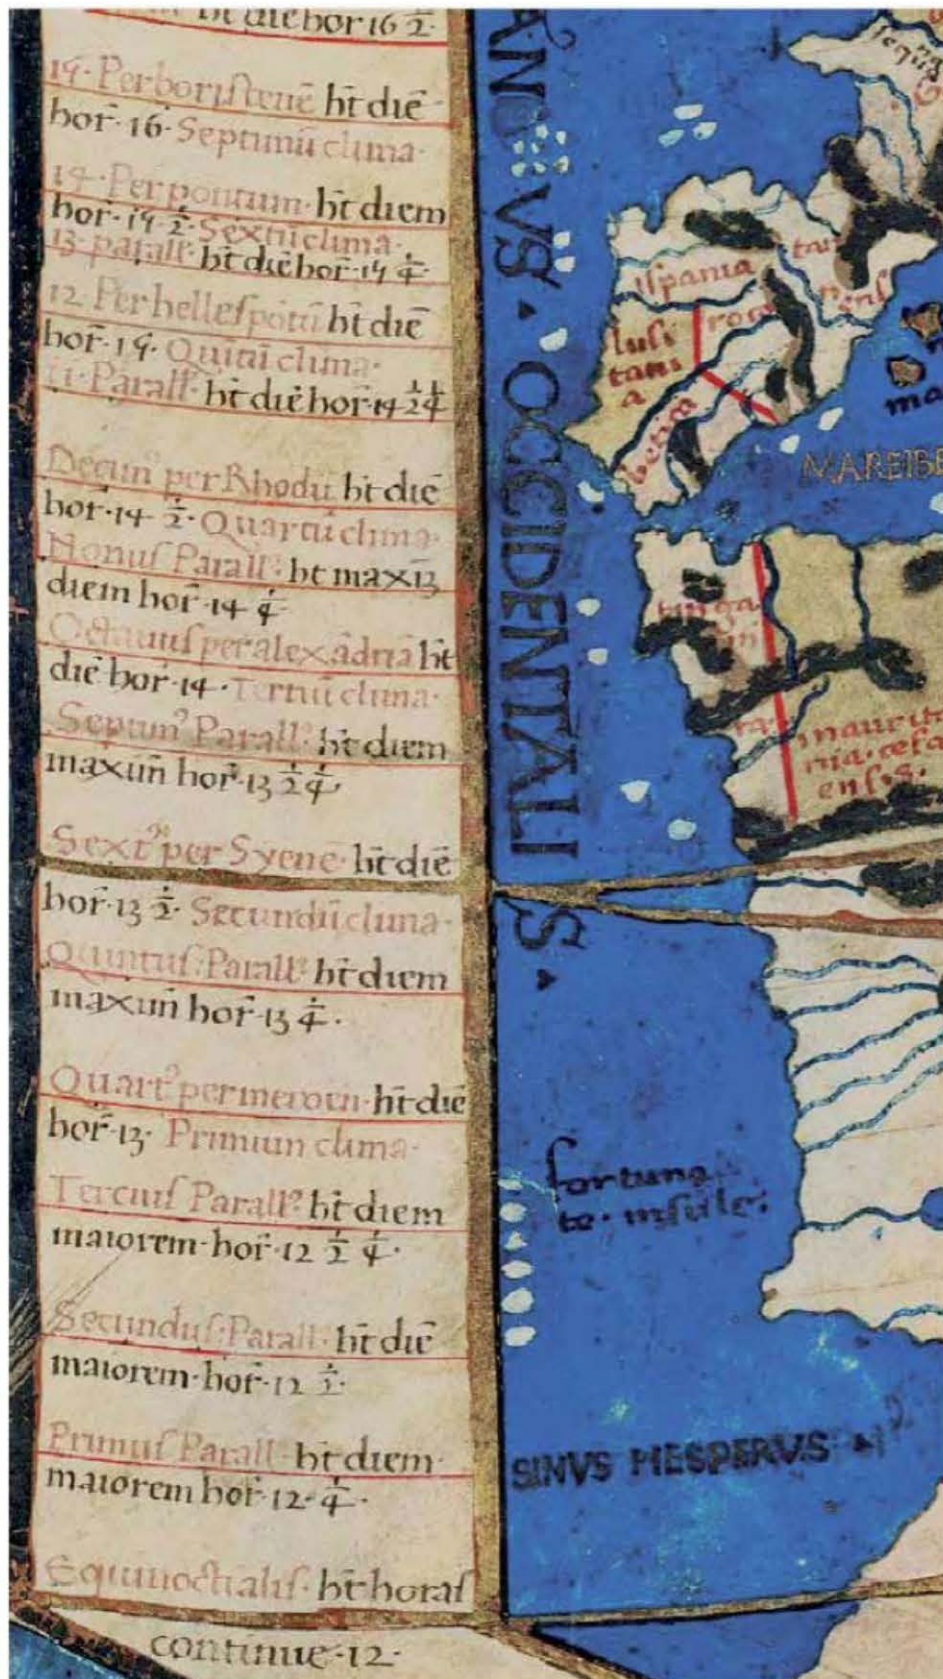 ht die hor 16 ½·
15· Per boristenē ht diē
hor̄· 16· Septimū clima·
14· Per pontum· ht diem
hor̄· 15 ½· Sextū clima·
13· parall· ht diē hor̄· 15 ¼·
12 Per hellespōtū ht diē
hor̄· 15· Quītū clima·
11· Parall· ht diē hor̄· 14 ½ ¼
Decim⁹ per Rhodū ht diē
hor̄· 14 ½· Quartū clima·
Nonus Parall⁹· ht maxīm
diem hor̄· 14 ¼·
Octauus per alexādriā ht
diē hor̄· 14· Tertiū clima·
Septim⁹ Parall⁹· ht diem
maxim̄ hor̄· 13 ½ ¼·
Sext⁹ per Syenē· ht diē
hor̄· 13 ½· Secundū clima·
Quintus· Parall⁹· ht diem
maxim̄ hor̄· 13 ¼·
Quart⁹ per meroen· ht diē
hor̄· 13· Primum clima·
Tercius Parall⁹· ht diem
maiorem· hor̄· 12 ½ ¼·
Secundus· Parall· ht diē
maiorem· hor̄· 12 ½·
Primus Parall· ht diem·
maiorem hor̄· 12· ¼·
Equinoctialis· ht horas
continue· 12·
ANUS· OCCIDENTALIS·
ispania
tar
raco
nensis
lusi
tani
a
betica
ma
MARE IBE
tinga
maurita
nia· cesa
ensis·
fortuna
te· insule·
SINVS HESPERVS